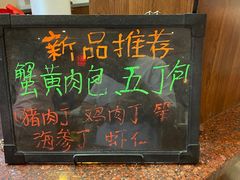 新品推荐
蟹黄肉包 五丁包
猪肉丁 鸡肉丁 笋
海参丁 虾仁